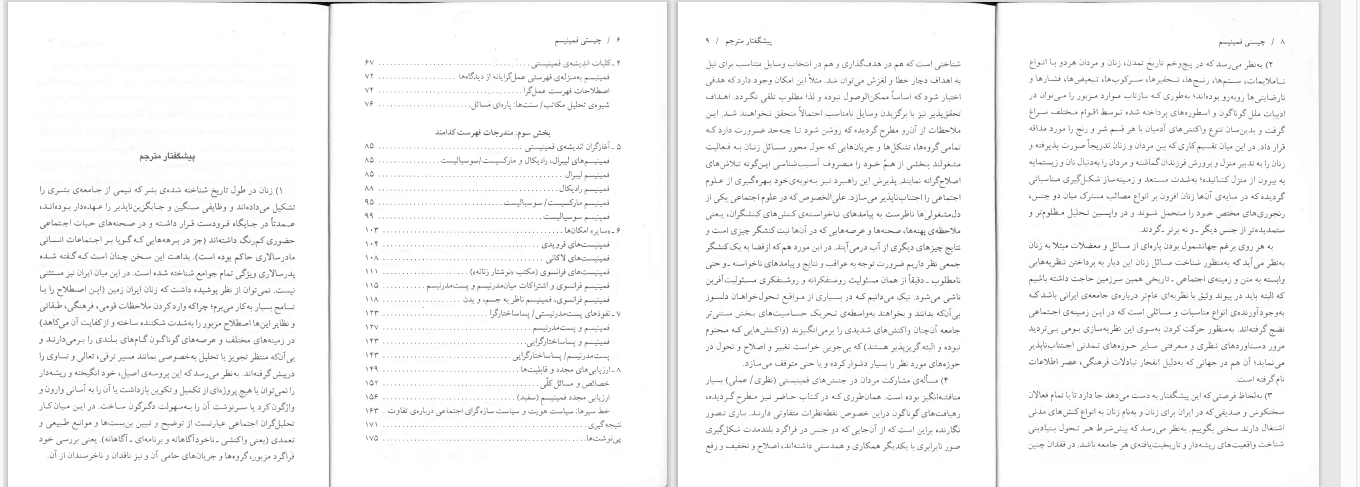 ۶ / چیستی فمینیسم
۴ ـ کلیات اندیشه‌ی فمینیستی ۶۷
فمینیسم به‌منزله‌ی فهرستی عمل‌گرایانه از دیدگاه‌ها ۷۲
اصطلاحات فهرست عمل‌گرا ۷۴
شیوه‌ی تحلیل مکاتب/ سنت‌ها: پاره‌ای مسائل ۷۶
بخش سوم: مندرجات فهرست کدامند
۵ ـ آغازگران اندیشه‌ی فمینیستی ۸۵
فمینیسم‌های لیبرال، رادیکال و مارکسیست/سوسیالیست ۸۵
فمینیسم لیبرال ۸۵
فمینیسم رادیکال ۸۸
فمینیسم مارکسیست/ سوسیالیست ۹۵
فمینیسم سوسیالیست ۹۹
۶ ـ «سایر» امکان‌ها ۱۰۳
فمینیست‌های فرویدی ۱۰۴
فمینیست‌های لاکانی ۱۰۸
فمینیست‌های فرانسوی (مکتب «نوشتار زنانه») ۱۱۱
فمینیسم فرانسوی و اشتراکات میان‌مدرنیسم و پست‌مدرنیسم ۱۱۵
فمینیسم فرانسوی، فمینیسم ناظر به جسم، و بدن ۱۱۸
۷ ـ نفوذهای پست‌مدرنیستی/ پساساختارگرا ۱۲۳
فمینیسم و پست‌مدرنیسم ۱۲۷
فمینیسم و پساساختارگرایی ۱۳۳
پست‌مدرنیسم/ پساساختارگرایی ۱۴۳
۸ ـ ارزیابی‌های مجدد و قابلیت‌ها ۱۴۹
خصائص و مسائل کلّی ۱۵۲
ارزیابی مجدد فمینیسم (سفید) ۱۵۶
خط سیرها: سیاست هویت و سیاست سازه‌گرای اجتماعی درباره‌ی تفاوت ۱۶۳
نتیجه‌گیری ۱۷۱
پی‌نوشت‌ها ۱۷۵
پیشگفتار مترجم
۱) زنان در طول تاریخ شناخته شده‌ی بشر که نیمی از جامعه‌ی بشری را
تشکیل می‌داده‌اند و وظایفی سنگین و جایگزین‌ناپذیر را عهده‌دار بوده‌اند،
عـمدتاً در جـایگاه فـرودست قـرار داشته و در صحنه‌های حیات اجتماعی
حضوری کم‌رنگ داشته‌اند (جز در برهه‌هایی که گویـا بـر اجـتماعات انسـانی
مادرسالاری حاکم بوده است). بداهت این سخن چنان است کـه گفته شده
پدرسالاری ویژگی تمام جوامع شناخته شده است. در این میان ایران نیز مستثنی
نیست. نمی‌توان از نظر پوشیده داشت که زنان ایران زمین (این اصـطلاح را بـا
تسامح بسیار به‌کار می‌برم؛ چراکه واردکردن ملاحظات قومی، فرهنگی، طبقاتی
و نظایر این‌ها اصطلاح مزبور را به‌شدت شکننده ساخته و از کفایت آن می‌کاهد)
در زمینه‌های مختلف و عرصه‌های گوناگون گام‌های بـلندی را بـرمی‌دارنـد و
بی‌آن‌که منتظر تجویز یا تحلیل به‌خصوصی بمانند مسیر ترقی، تعالی و تساوی را
درپیش گرفته‌اند. به‌نظر می‌رسد که این پروسه‌ی اصیل، خود انگیخته و ریشه‌دار
را نمی‌توان با هیچ پروژه‌ای از تکمیل و تکوین بازداشت یا آن را به آسانی وارون و
واژگون کرد یا سرنوشت آن را بـه‌سهولت دگـرگون سـاخت. در این مـیان کـار
تحلیل‌گران اجتماعی عبارتست از توضیح و تبیین بن‌بست‌ها و موانع طبیعی و
تعمدی (یعنی واکنشی ـ ناخودآگاهانه و برنامه‌ای ـ آگاهانه). یعنی بررسی خود
فراگرد مزبور، گروه‌ها و جریان‌های حامی آن و نیز ناقدان و ناخرسندان از آن.
۸ / چیستی فمینیسم
۲) به‌نظر می‌رسد که در پیچ‌وخم تاریخ تمدن، زنان و مردان هردو بـا انـواع
نـاملایمات، سـتم‌ها، رنـج‌ها، تـحقیرها، سـرکوب‌ها، تـبعیض‌ها، فشـارها و
نارضایتی‌ها روبه‌رو بوده‌اند؛ به‌طوری کـه بـازتاب مـوارد مـزبور را می‌توان در
ادبیات ملل گوناگون و اسطوره‌های پرداخته شده تـوسط اقـوام مـختلف سـراغ
گرفت و بدین‌سان تنوع واکنش‌های آدمیان با هر قسم شر و رنج را مورد مداقه
قرار داد. در این میان تقسیم‌کاری که بین مردان و زنان تدریجاً صورت پذیرفته و
زنان را به تدبیر منزل و پرورش فرزندان گماشته و مردان را به‌دنبال نان و زیستمایه
به بیرون از منزل کشانیده؛ به‌شدت مستعد و زمینه‌ساز شکل‌گیری مناسباتی
گردیده که در سایه‌ی آن‌ها زنان افزون بر انواع مصائب مشترک میان دو جنس،
رنجوری‌های مختص خـود را مـتحمل شـوند و در واپسین تـحلیل مـظلوم‌تر و
ستمدیده‌تر از جنس دیگر ـ و نه برتر ـ گردند.
به هر روی برغم جهانشمول بودن پاره‌ای از مسائل و معضلات مبتلا به زنان
به‌نظر می‌آید که به‌منظور شناخت مسائل زنان این دیار به پرداختن نـظریه‌هایی
وابسته به متن و زمینه‌ی اجتماعی ـ تاریخی همین سرزمین حاجت داشته باشیم
که البته باید در پیوند وثیق با نظریه‌ای عام‌تر درباره‌ی جامعه‌ی ایرانی باشد کـه
به‌وجودآورنده‌ی انواع مناسبات و مسائلی است که در ایـن زمـینه‌ی اجـتماعی
نضج گرفته‌اند. به‌منظور حرکت کردن به‌سوی این نظریه‌سازی بـومی بی‌تردید
مرور دستاوردهای نظری و معـرفتی سایر حـوزه‌های تـمدنی اجـتناب‌ناپذیر
می‌نماید؛ آن هم در جهانی که به‌دلیل انفجار تبادلات فرهنگی، عصر اطلاعات
نام گرفته است.
۳) به‌لحاظ فرصتی که این پیشگفتار به دست می‌دهد جا دارد تا با تمام فعالان
سختکوش و صدیقی که در ایران برای زنان و به‌نام زنان به انواع کنش‌های مدنی
اشتغال دارند سخنی بگوییم. به‌نظر می‌رسد که پیش‌شرط هـر تـحول بـنیادینی
شناخت واقعیت‌های ریشه‌دار و تاریخیت‌یافته‌ی هر جامعه باشد. در فقدان چنین
پیشگفتار مترجم / ۹
شناختی است که هـم در هدف‌گذاری و هـم در انتخاب وسایل متناسب برای نیل
به اهداف دچار خطا و لغزش می‌توان شد. مثلاً این امکان وجود دارد که هدفی
اختیار شود که اساساً ممکن‌الوصول نبوده و لذا مطلوب تلقی نگـردد. اهـداف
تحقق‌پذیر نیز با برگزیدن وسایل نامناسب احتمالاً متحقق نـخواهـند شـد. ایـن
ملاحظات از آن‌رو مطرح گردیده که روشن شود تا چـه‌حد ضرورت دارد کـه
تمامی گروه‌ها، تشکل‌ها و جریان‌هایی که حول محور مسائل زنـان بـه فـعالیت
مشغولند بخشی از هـمّ خـود را مـصروف آسیب‌شناسی ایـن‌گونه تـلاش‌های
اصلاح‌گرانه نمایند. پذیرش این راهبرد نیـز بـه‌نوبه‌ی‌خود بـهره‌گیری از عـلوم
اجتماعی را اجتناب‌ناپذیر می‌سازد. علی‌الخصوص که در علوم اجتماعی یکی از
دل‌مشغولی‌ها ناظرست به پیامدهای نـاخواسـته‌ی کـنش‌های کـنشگران، یـعنی
ملاحظه‌ی پهنه‌ها، صحنه‌ها و عرصه‌هایی که در آن‌ها نیت کنشگر چیزی است و
نتایج چیزهای دیگری از آب درمی‌آیند. در این مورد هم که ازقضا به یک کنشگر
جمعی نظر داریم ضرورت توجه به عواقب و نتایج و پیامدهای ناخواسته ـ و حتی
نامطلوب ـ دقیقاً از همان مسئولیت روشنفکرانه و روشنفکری مسـئولیت‌آفرین
ناشی می‌شود. نیک می‌دانیم کـه در بسـیاری از مـواقـع تـحول‌خواهـان دلسـوز
بی‌آن‌که بدانند و بخواهند به‌واسطه‌ی تـحریک حسـاسیت‌های بـخش سـنتی‌تر
جامعه آن‌چنان واکنش‌های شدیدی را بـرمی‌انگیزند (واکـنش‌هایی کـه مـحتوم
نبوده و البته گریزپذیر هستند) که بی‌جویی خواست تغییر و اصلاح و تحول در
حوزه‌های مورد نظر را بسیار دشوار کرده و یا حتی متوقف می‌سازد.
۴) مسأله‌ی مشارکت مردان در جنبش‌های فمینیستی (نظری/ عملی) بسیار
مناقشه‌انگیز بوده است. همان‌طوری کـه در کـتاب حـاضر نیـز مـطرح گـردیده،
رهیافت‌های گوناگون دراین خصوص نقطه‌نظرات متفاوتی دارنـد. بـاری تـصور
نگارنده براین است که از آن‌جایی که دو جنس در فراگرد بلندمدت شکل‌گیری
صور نابرابری با یکدیگر همکاری و همدستی داشته‌اند، اصلاح و تخفیف و رفع